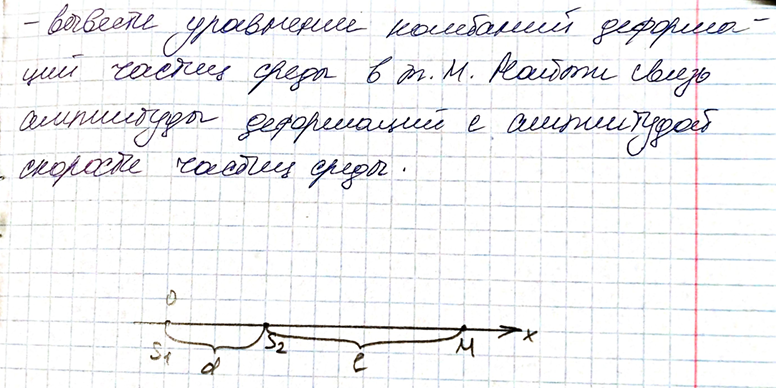 - вывести уравнении колебаний деформа-
ций частиц среды в т. М. Найти связь
амплитуды деформаций с амплитудой
скорости частиц среды.
0
S1 d S2 l M x